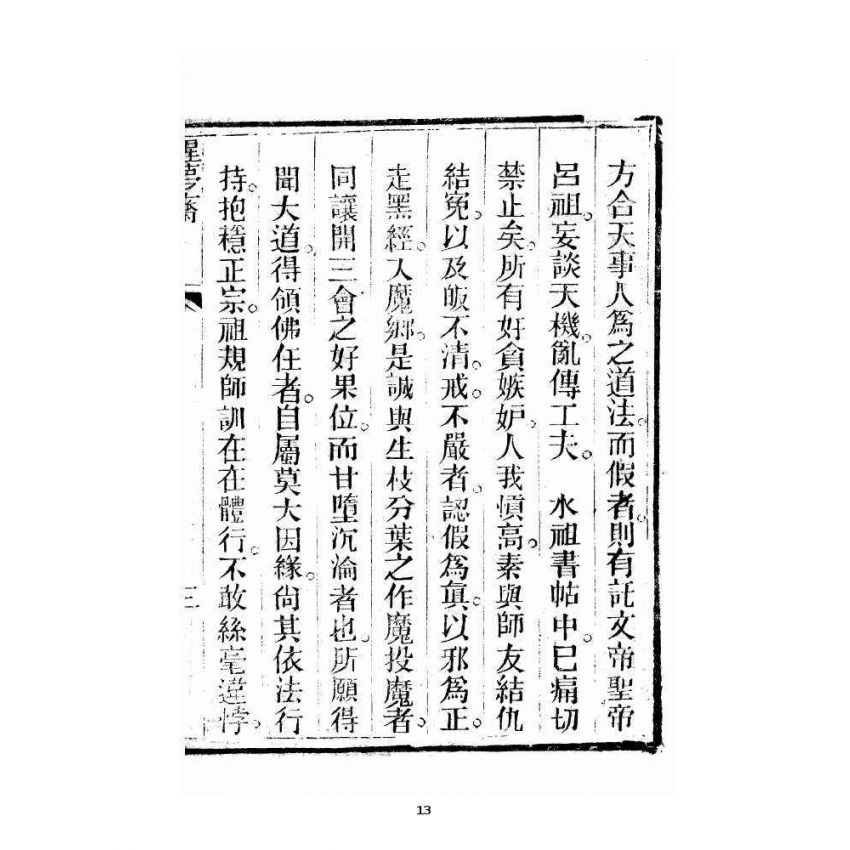 方合天事人爲之道法。而假者。則有託文帝聖帝
呂祖。妄談天機。亂傳工夫。 水祖書帖中。已痛切
禁止矣。所有奸貪嫉妒。人我慎高。素與師友結仇
結寃。以及皈不清。戒不嚴者。認假爲眞。以邪爲正。
走黑經。入魔鄉。是誠與生枝分葉之作魔投魔者。
同讓開三會之好果位。而甘墮沉淪者也。所願得
聞大道。得領佛任者。自屬莫大因緣。尙其依法行
持。抱穩正宗。祖規師訓。在在體行。不敢絲毫違悖。
醒夢齋
三
13